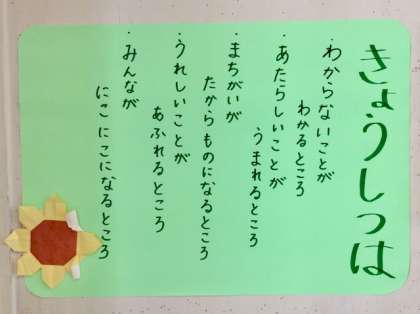 きょうしつは
・わからないことが
わかるところ
・あたらしいことが
うまれるところ
・まちがいが
たからものになるところ
・うれしいことが
あふれるところ
・みんなが
にこにこになるところ